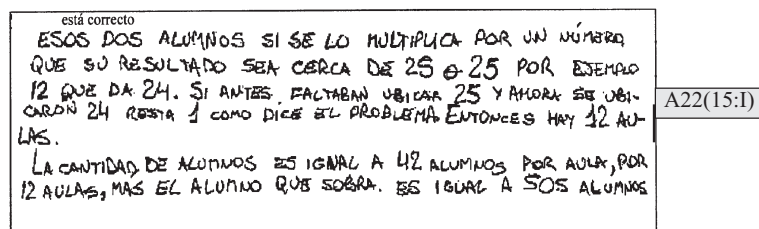 está correcto
ESOS DOS ALUMNOS SI SE LO MULTIPLICA POR UN NÚMERO
QUE SU RESULTADO SEA CERCA DE 25 o 25 POR EJEMPLO
12 QUE DA 24. SI ANTES FALTABAN UBICAR 25 Y AHORA SE UBI-
CARON 24 RESTA 1 COMO DICE EL PROBLEMA. ENTONCES HAY 12 AU-
LAS.
LA CANTIDAD DE ALUMNOS ES IGUAL A 42 ALUMNOS POR AULA, POR
12 AULAS, MAS EL ALUMNO QUE SOBRA. ES IGUAL A 505 ALUMNOS
A22(15:I)